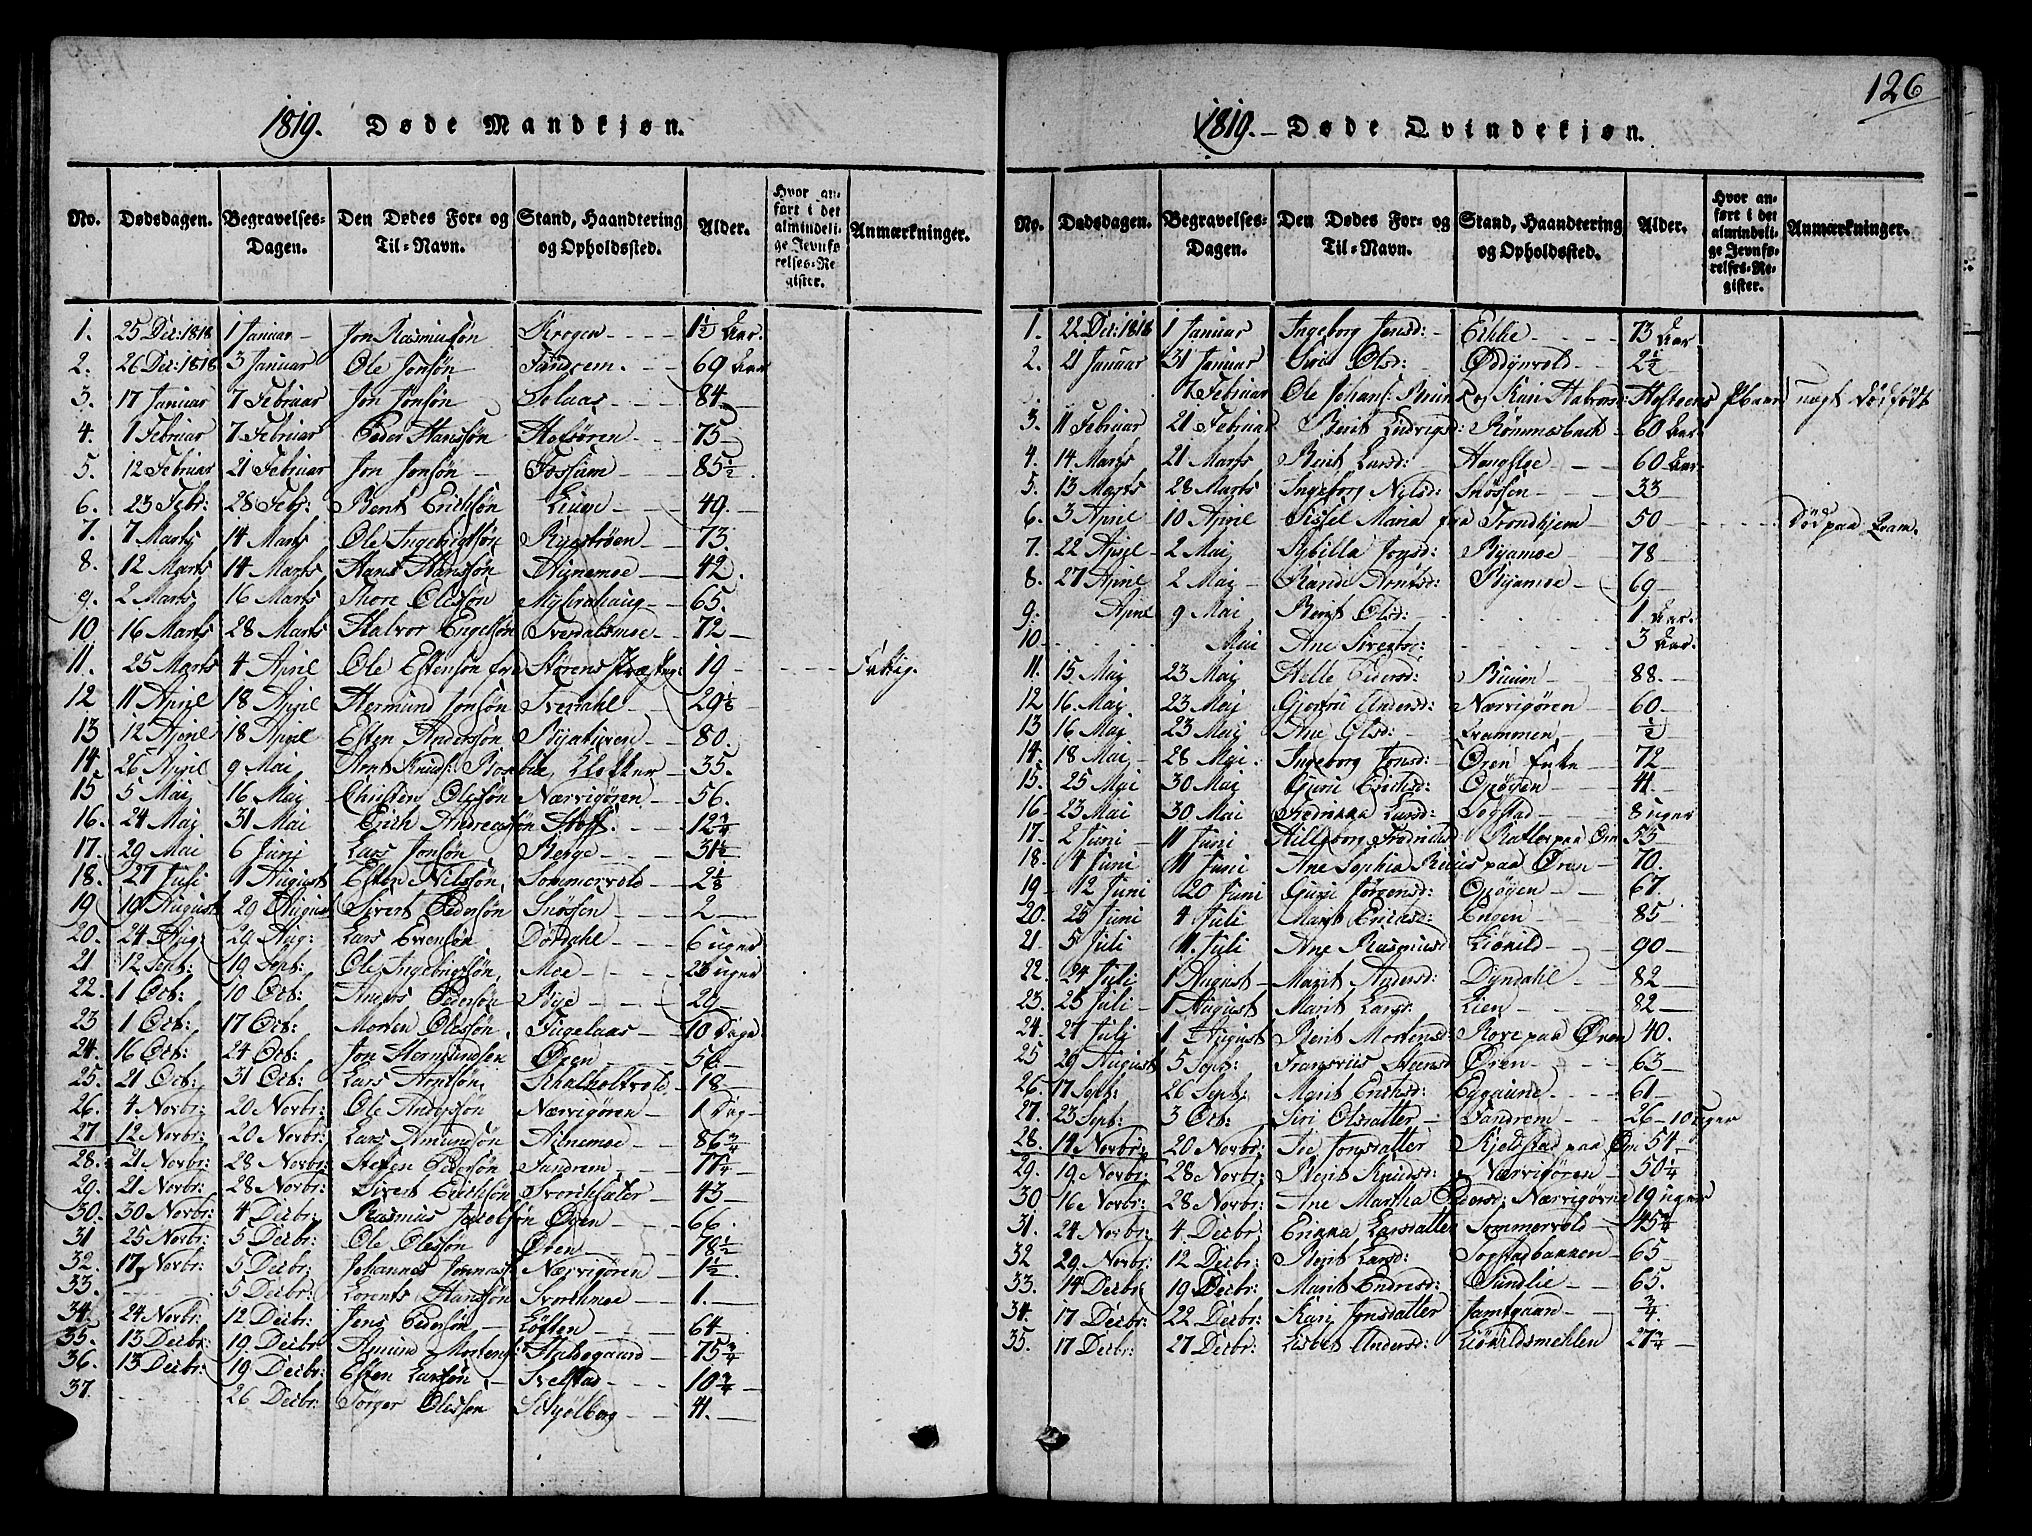 1819. Døde Mandkjøn.
No. Dødsdagen. Begravelses-Dagen. Den Dødes For- og Til-Navn. Stand, Haandtering og Opholdssted. Alder. Hvor anført i det almindelige Jevnførelses-Register. Anmærkninger.
1. 25 Dec: 1818 1 Januar Jon Rasmusøn Krogen 1½ Aar.
2. 26 Dec: 1818 3 Januar Ole Jonsøn Sandrem. 69 Aar
3. 17 Januar 7 Februar Jon Jonsøn Solaas 84
4. 1 Februar 7 Februar Peder Hanssøn Hofsøren 75
5. 12 Februar 21 Februar Jon Jonsøn Fossum 85½
6. 23 Febr: 28 Febr: Bent Erichsøn Lium 49.
7. 7 Marts 14 Marts Ole Ingebrigtsøn 73.
8. 12 Marts 14 Marts Hans Hanssøn 42.
9. 2 Marts 16 Marts Thore Olessøn Myhrahaug 65.
10. 16 Marts 28 Marts Halvor Engelsøn Sverdalsmoe 72
11. 25 Marts 4 April Ole Estensøn fra Størens Præstegj: 19 Fattig.
12 11 April 18 April Hermund Jonsøn Sverdahl 29
13 12 April 18 April Esten Andersøn 80.
14. 26 April 9 Mai Arnt Knuds: Klokker 35.
15 5 Mai 16 Mai Christen Olessøn Nærvigøren 56.
16. 24 Mai 31 Mai Erich Andreasøn Hoff. 12¾
17. 29 Mai 6 Juni Lars Jonsøn Berge 31½
18. 27 Juli 1 August Esten Nilssøn Sommervold 2⅛
19 19 August 29 August Sivert Pedersøn Snøssen 2
20. 24 Aug: 29 Aug: Lars Evensøn Dørdahl 6 uger
21 12 Sept: 19 Sept: Ole Ingebrigtsøn Moe 23 uger
22. 1 Oct: 10 Oct: Anders Pedersøn Rye 29
23 1 Oct: 17 Oct: Morten Olessøn Fugelaas 10 Dage
24. 16 Oct: 24 Oct: Jon Hermundsøn Øren 56.
25. 21 Oct: 31 Oct: Lars Arntsøn Schalholtvold 18
26. 4 Novbr: 20 Novbr: Ole Anderssøn Nærvigøren 1 Dag
27 12 Novbr: 20 Novbr: Lars Amundsøn 86¾
28. 21 Novbr: 28 Novbr: Steffen Pedersøn Sandrem 77¼
29. 21 Novbr: 28 Novbr: Sivert Erichsøn 43
30. 30 Novbr: 4 Decbr: Rasmus Jacobsøn Øren 66.
31 25 Novbr: 5 Decbr: Ole Olessøn Øren 78½
32. 17 Novbr: 5 Decbr: Johannes Jonnas: Nærvigøren 1½
33. 5 Decbr: Lorents Hanssøn Svorchmoe 1.
34. 24 Novbr: 12 Decbr: Jens Pedersøn Løften 64
35. 13 Decbr: 19 Decbr: Amund Mortens: 75¾
36. 13 Decbr: 19 Decbr: Esten Larssøn 10¾
37. 26 Decbr: Tørger Olessøn Schjølberg 41.
126
1819. Døde Qvindekjøn.
No. Dødsdagen. Begravelses-Dagen. Den Dødes For- og Til-Navn. Stand, Haandtering og Opholdssted. Alder. Hvor anført i det almindelige Jevnførelses-Register. Anmærkninger.
1. 22 Dec: 1818 1 Januar Ingeborg Jonsd: 73 Aar
2. 21 Januar 31 Januar Siri Olsd: 2½
7 Februar Ole Johans: og Kari Halvors: nagt Dødfødt
3. 11 Februar 21 Februar Berit Ludvigsd: Rømmesbach 60 Aar.
4. 14 Marts 21 Marts Berit Larsd: Haugsloe 60 Aar.
5. 13 Marts 28 Marts Ingeborg Nylsd: Snøssen 33
6. 3 April 10 April Sissel Maria fra Trondhjem 50 Døde paa Evam.
7. 22 April 2 Mai Sybilla Jonsd: 78
8. 27 April 2 Mai Randi Arntsd: 69
9. April 9 Mai Berit Olsd: 1 Aar.
10. Mai Ane Siverts: 3 Aar.
11. 15. Mai 23 Mai Helle Eivrsd: 88.
12 16. Mai 23 Mai Gjertru Andersd: Nærvigøren 60
13 16 Mai 23 Mai Ane Olsd: Evammen ½
14. 18 Mai 28 Mai Ingeborg Jonsd: Øren Enke 72
15. 25 Mai 30 Mai Guri Erichsd: Opøyen 41.
16 23 Mai 30 Mai Fredrikka Larsd: Sogstad 8 uger
17. 2 Juni 11 Juni Hilleborg Fredrichsd: paa Øren 53
18. 4 Juni 11 Juni Ane Sophia paa Øren 70.
19 12 Juni 20 Juni Guri Jørgensd: Opøyen 67.
20. 25 Juni 4 Juli Marit Erichsd: Engen 85
21. 5 Juli 11. Juli Ane Rasmusd: Liøkild 90
22. 24 Juli 1 August Marit Andersd: Dyndahl 82
23. 25 Juli 1 August Marit Larsd: Lien 82
24. 27 Juli 1 August Berit Mortensd: paa Øren 40.
25 29 August 5 Sept: Steensd: Øren 63
26. 17 Sept: 26 Sept: Marit Erichsd: Eggaune 61
27. 23 Sept: 3 Oct: Siri Olsdatter Sandrem 26-10 uger
28. 14 Novbr: 20 Novbr: Jonsdatter Kjeldstad paa Øren 54
29. 19 Novbr: 28 Novbr: Berit Knudsd: Nærvigøren 50¼
30 16 Novbr: 28 Novbr: Ane Martha Pedersd: Nærvigøren 19 uger
31. 24 Novbr: 4 Decbr: Erikka Larsdatter Sommervold 45¾
32 29 Novbr: 12 Decbr: Berit Larsd: Sogstadbakken 65
33. 14 Decbr: 19 Decbr: Marit Endresd: Sundlie 65.
34. 17 Decbr: 22 Decbr: Kari Jonsdatter Jamtgaan ¾
35. 17 Decbr: 27 Decbr: Lisbet Andersd: Liøkildsmehlen 27¾